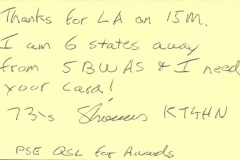 Thanks for LA on 15M.
I am 6 states away
from 5BWAS & I need
your card!
73's Thomas KT4HN
PSE QSL for Awards